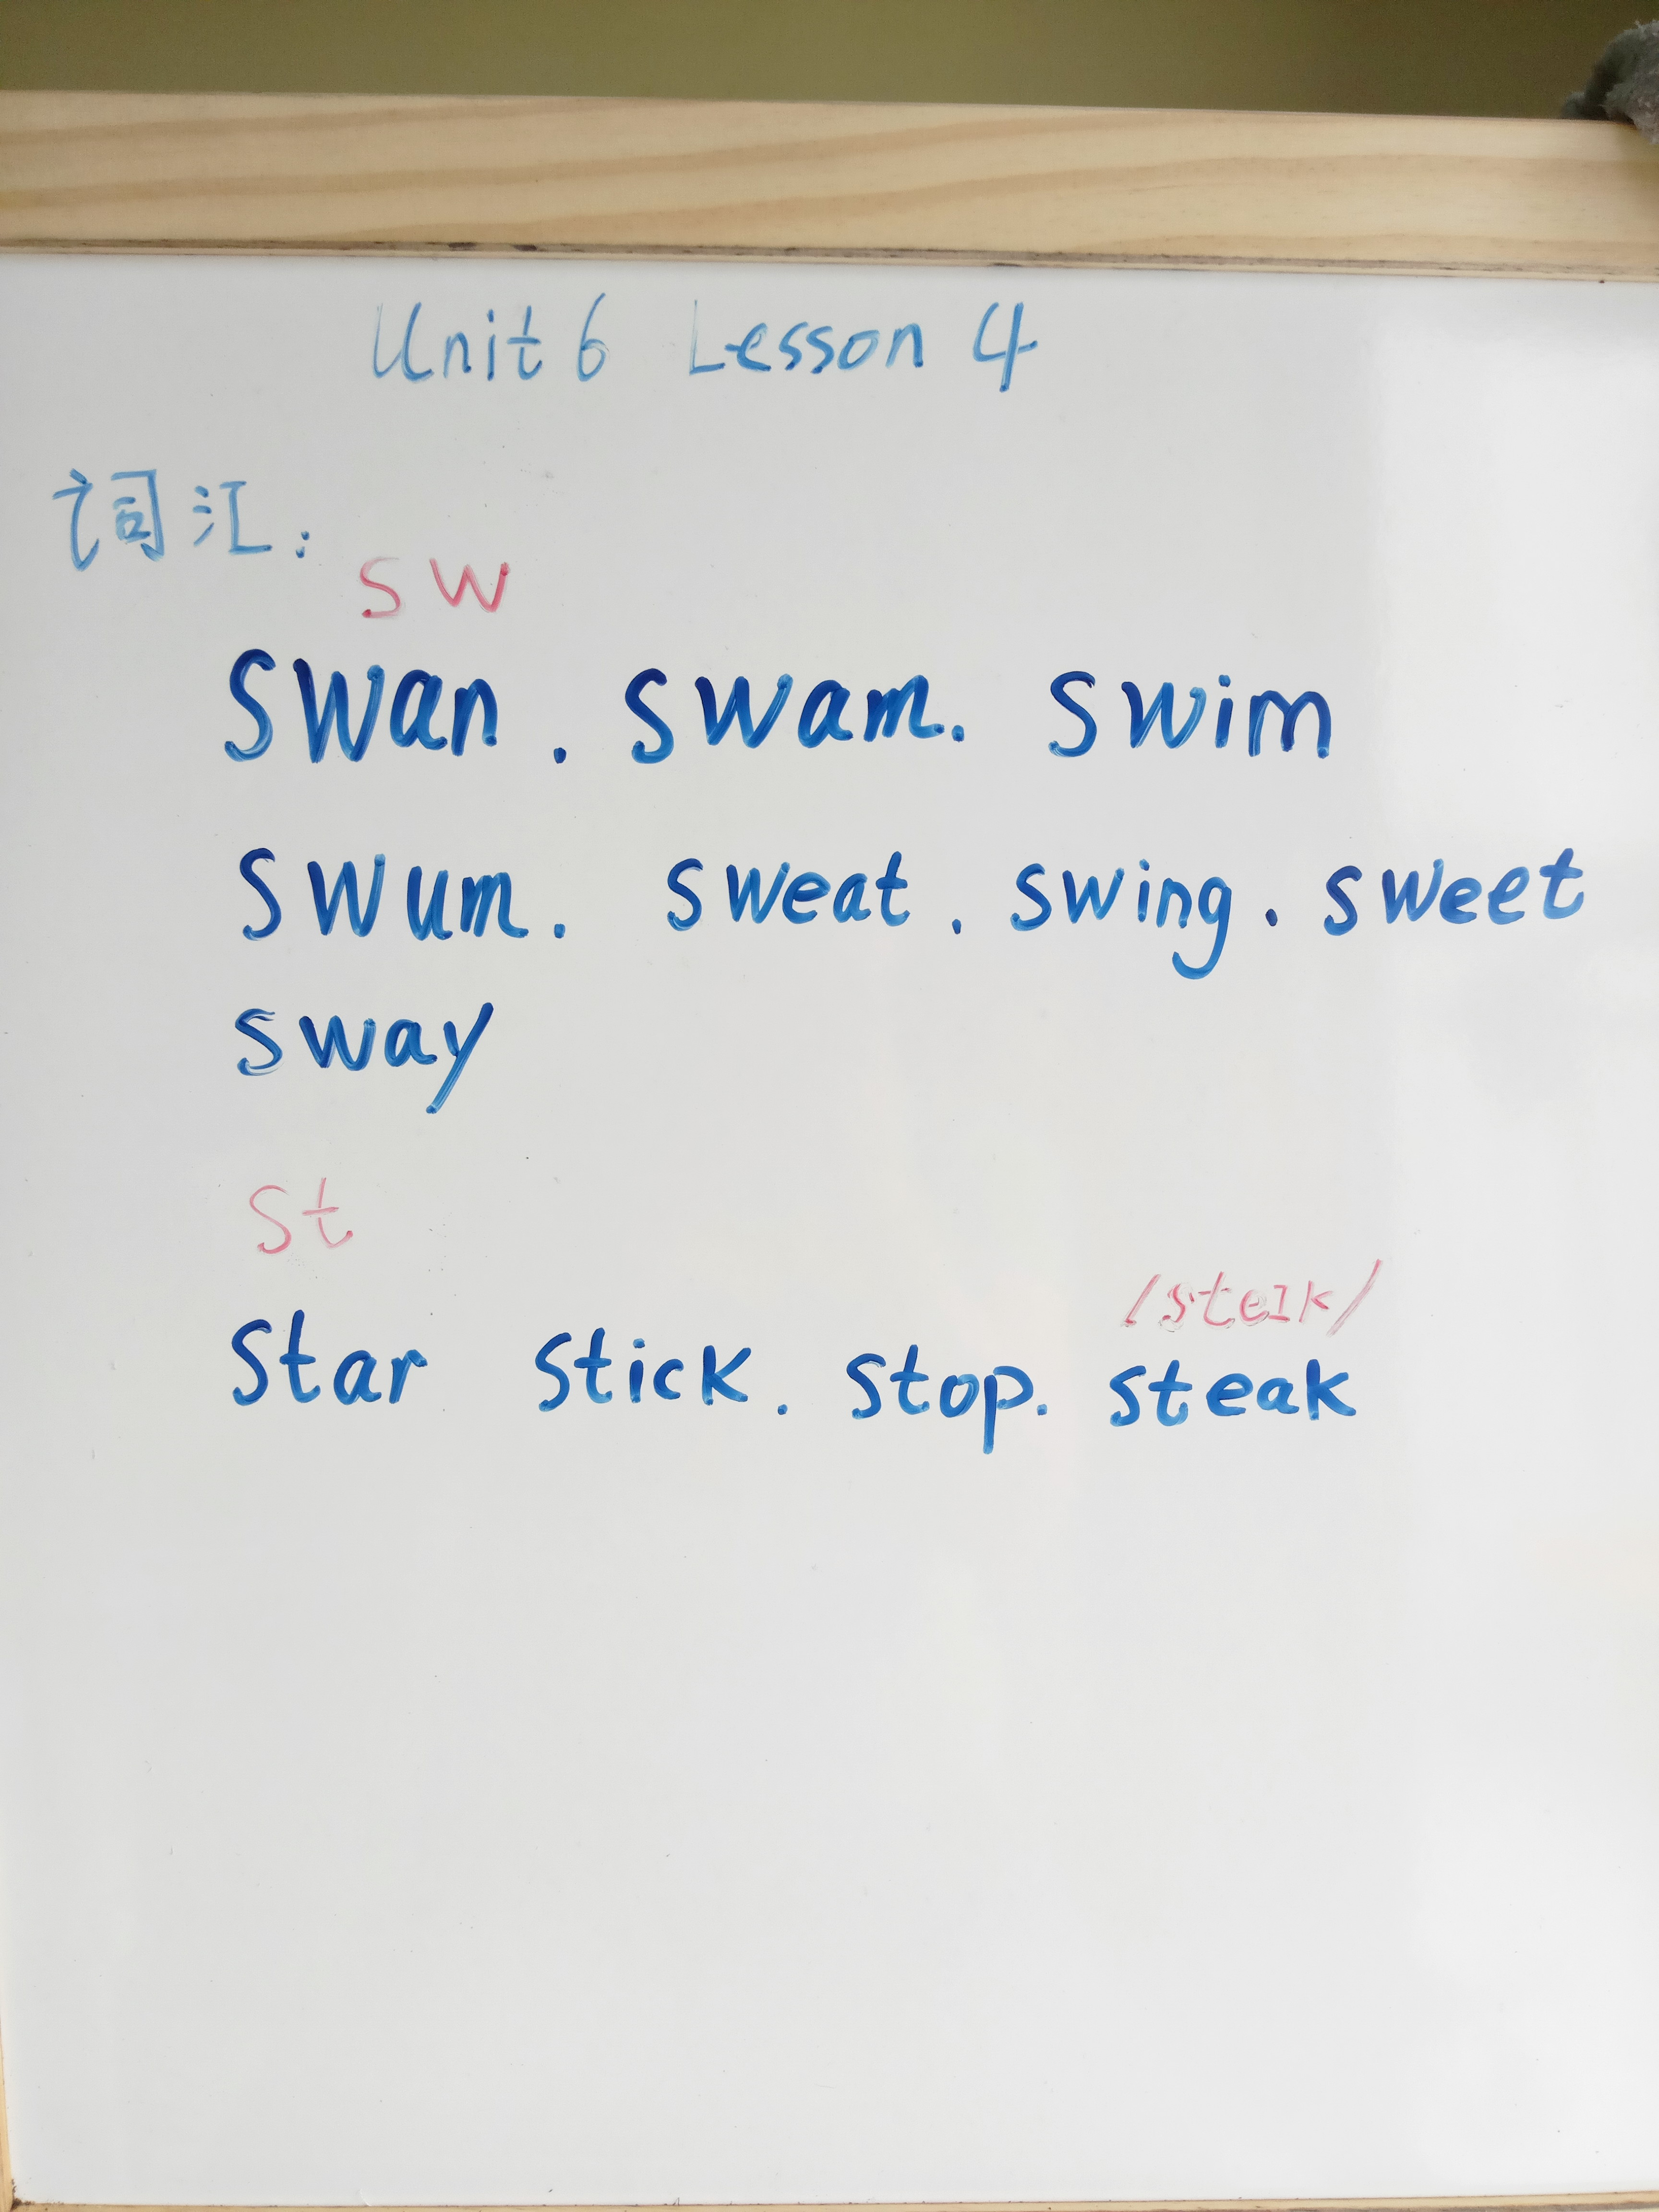 Unit 6 Lesson 4
词汇:
sw
swan . swam. swim
swum. sweat . swing . sweet
sway
st
/steɪk/
star stick . stop. steak